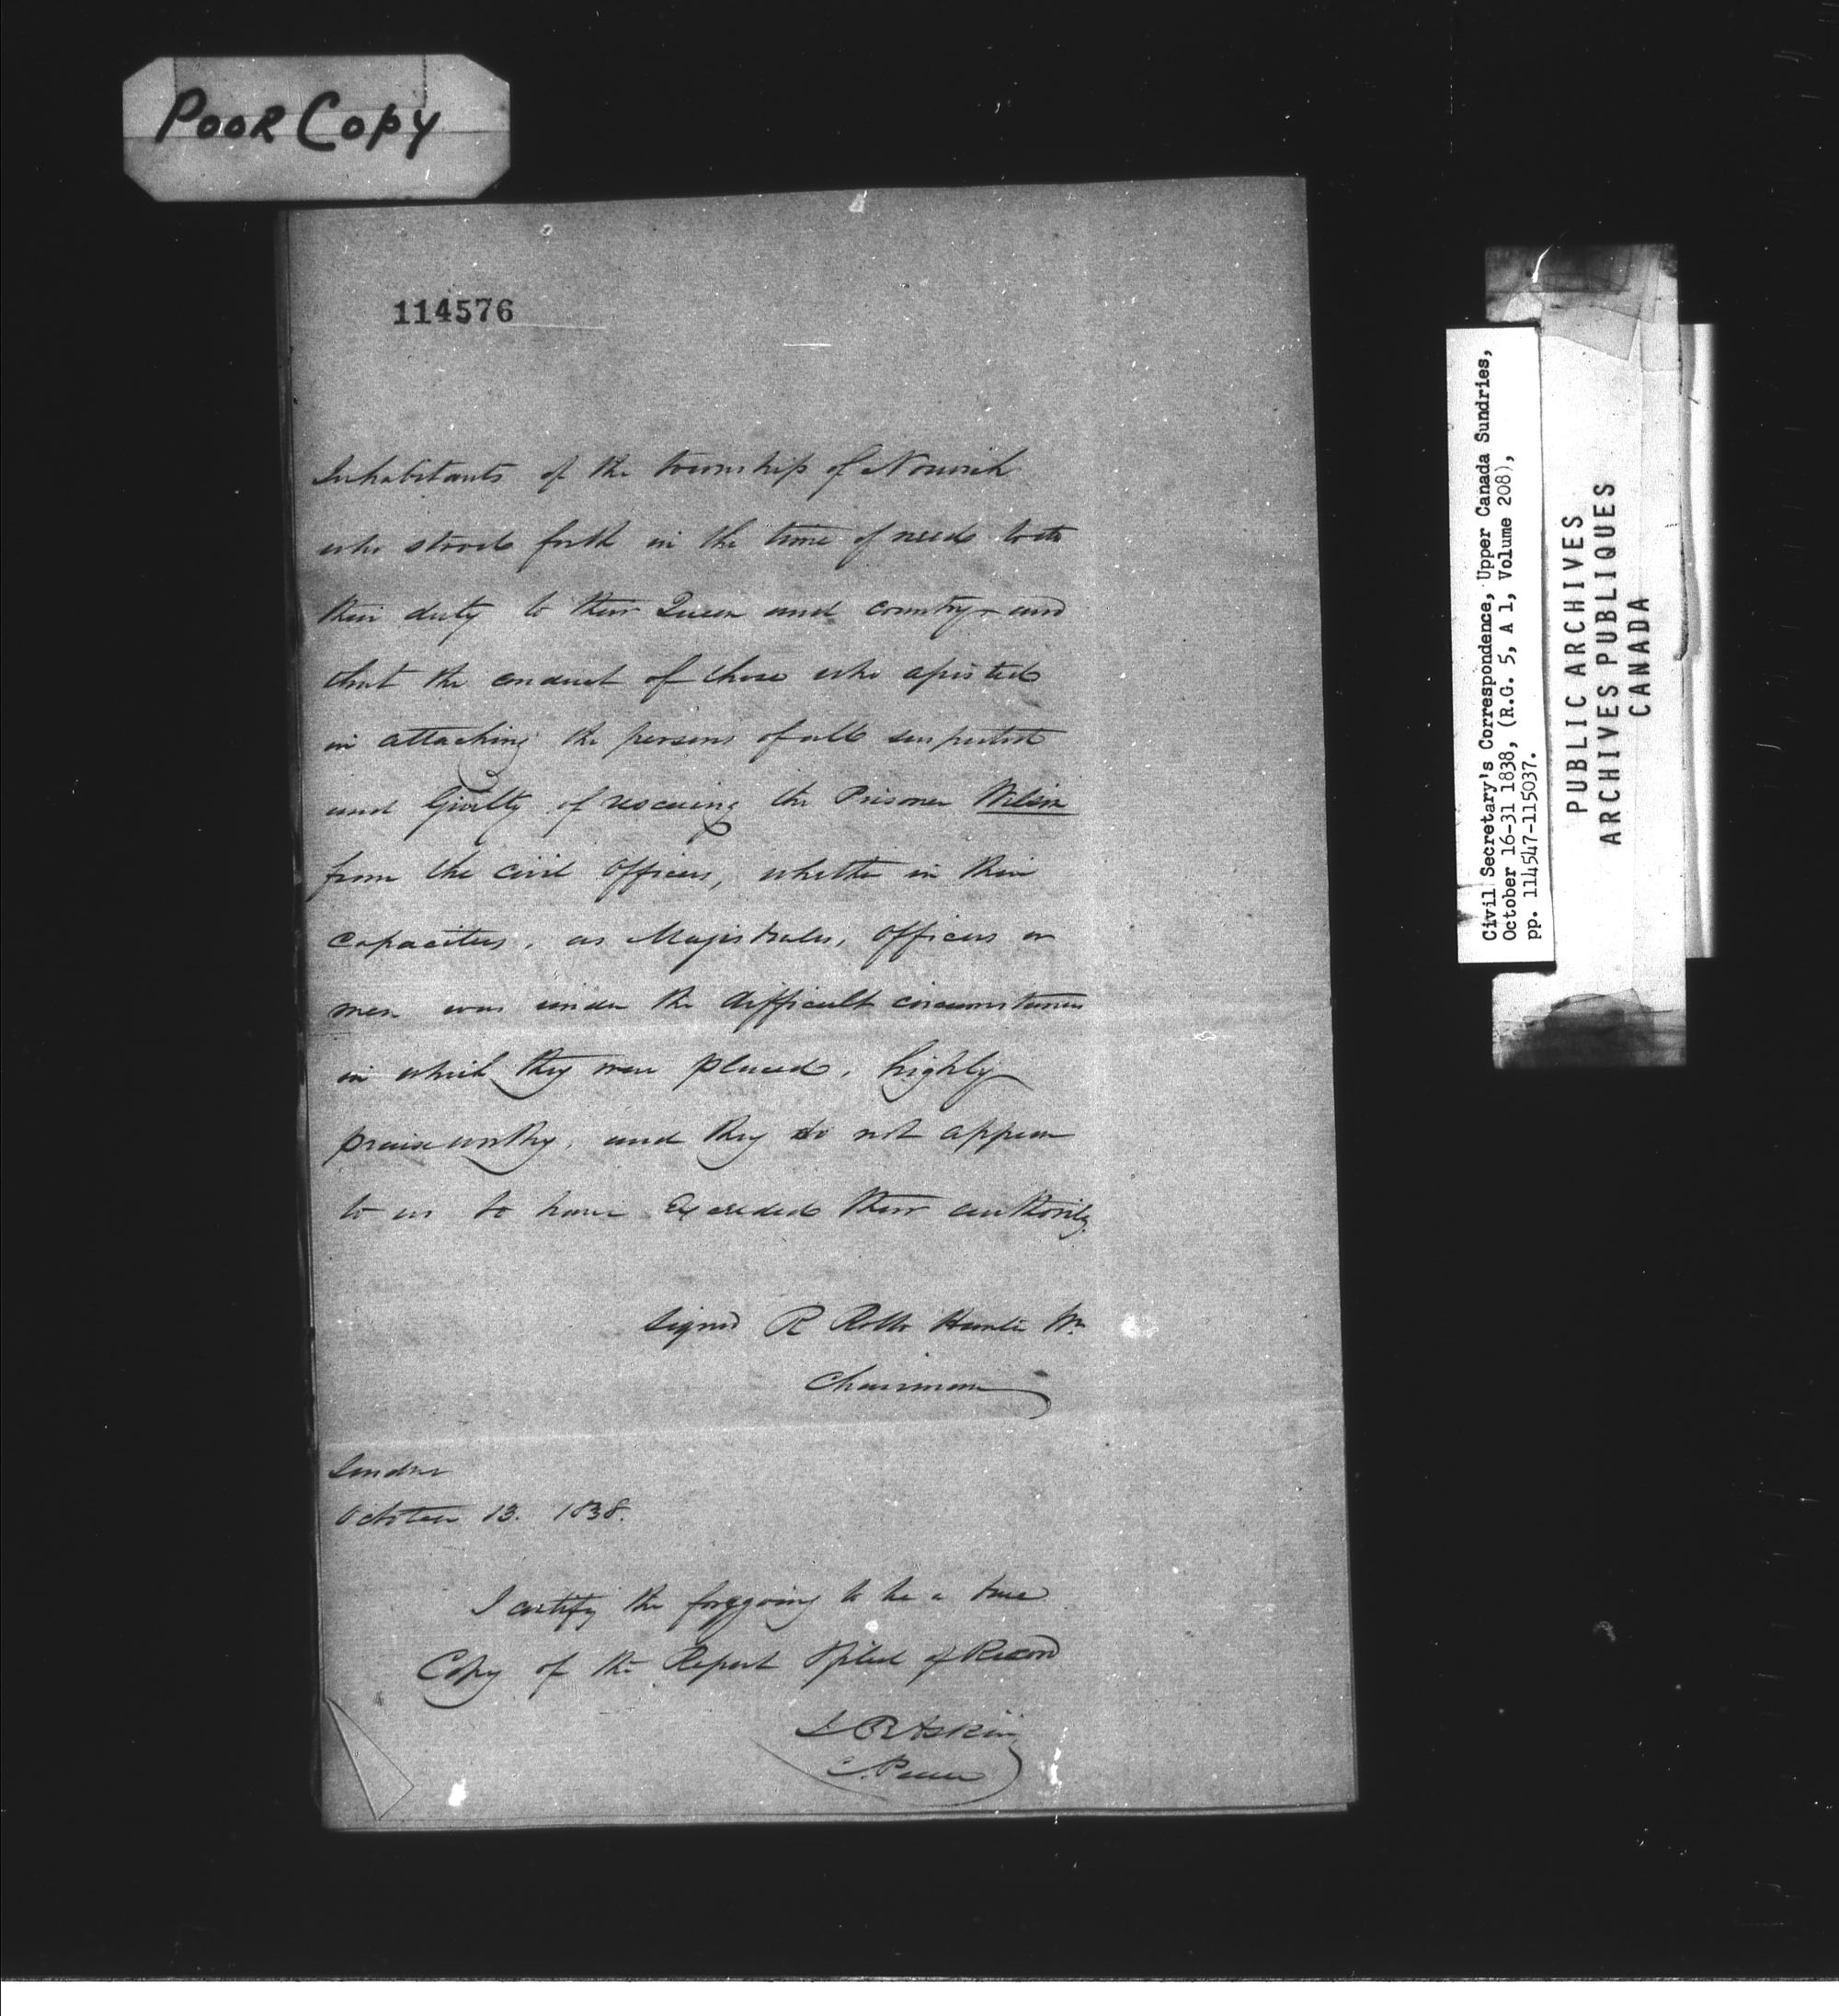 POOR COPY
114576
Inhabitants of the township of Norwich
who stood forth in the time of need to do
their duty to their Queen and country and
that the conduct of those who assisted
in attaching the persons of all suspected
and Guilty of rescuing the Prisoner Wilson
from the civil Officers, whether in their
capacities, as Magistrates, Officers or
men was under the difficult circumstances
in which they were placed, highly
praiseworthy, and they do not appear
to us to have Exceeded their authority.
Signed R Rollo Hunter
Chairman
London
October 13. 1838.
I certify the foregoing to be a true
Copy of the Report of Record
J B Askin
C. Peace
Civil Secretary's Correspondence, Upper Canada Sundries,
October 16-31 1838, (R.G. 5, A 1, Volume 208),
pp. 114547-115037.
PUBLIC ARCHIVES
ARCHIVES PUBLIQUES
CANADA